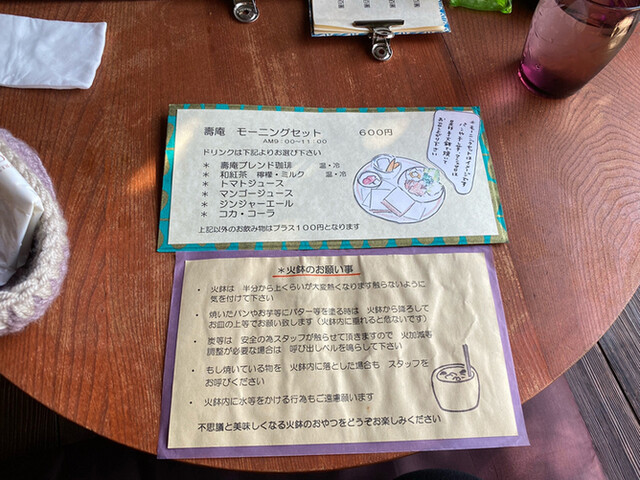 壽庵 モーニングセット 600円
AM9:00~11:00
ドリンクは下記よりお選び下さい
* 壽庵ブレンド珈琲 温・冷
* 和紅茶 檸檬・ミルク 温・冷
* トマトジュース
* マンゴージュース
* ジンジャーエール
* コカ・コーラ
上記以外のお飲み物はプラス100円となります
*火鉢のお願い事
・ 火鉢は 半分から上くらいが大変熱くなります触らないように
気を付けて下さい
・ 焼いたパンやお芋等にバター等を塗る時は 火鉢から降ろして
お皿の上等でお願い致します（火鉢内に垂れると危ないです）
・ 炭等は 安全の為スタッフが触らせて頂きますので 火加減等
調整が必要な場合は 呼び出しベルを鳴らして下さい
・ もし焼いている物を 火鉢内に落とした場合も スタッフを
お呼びください
・ 火鉢内に水等をかける行為もご遠慮願います
不思議と美味しくなる火鉢のおやつをどうぞお楽しみください